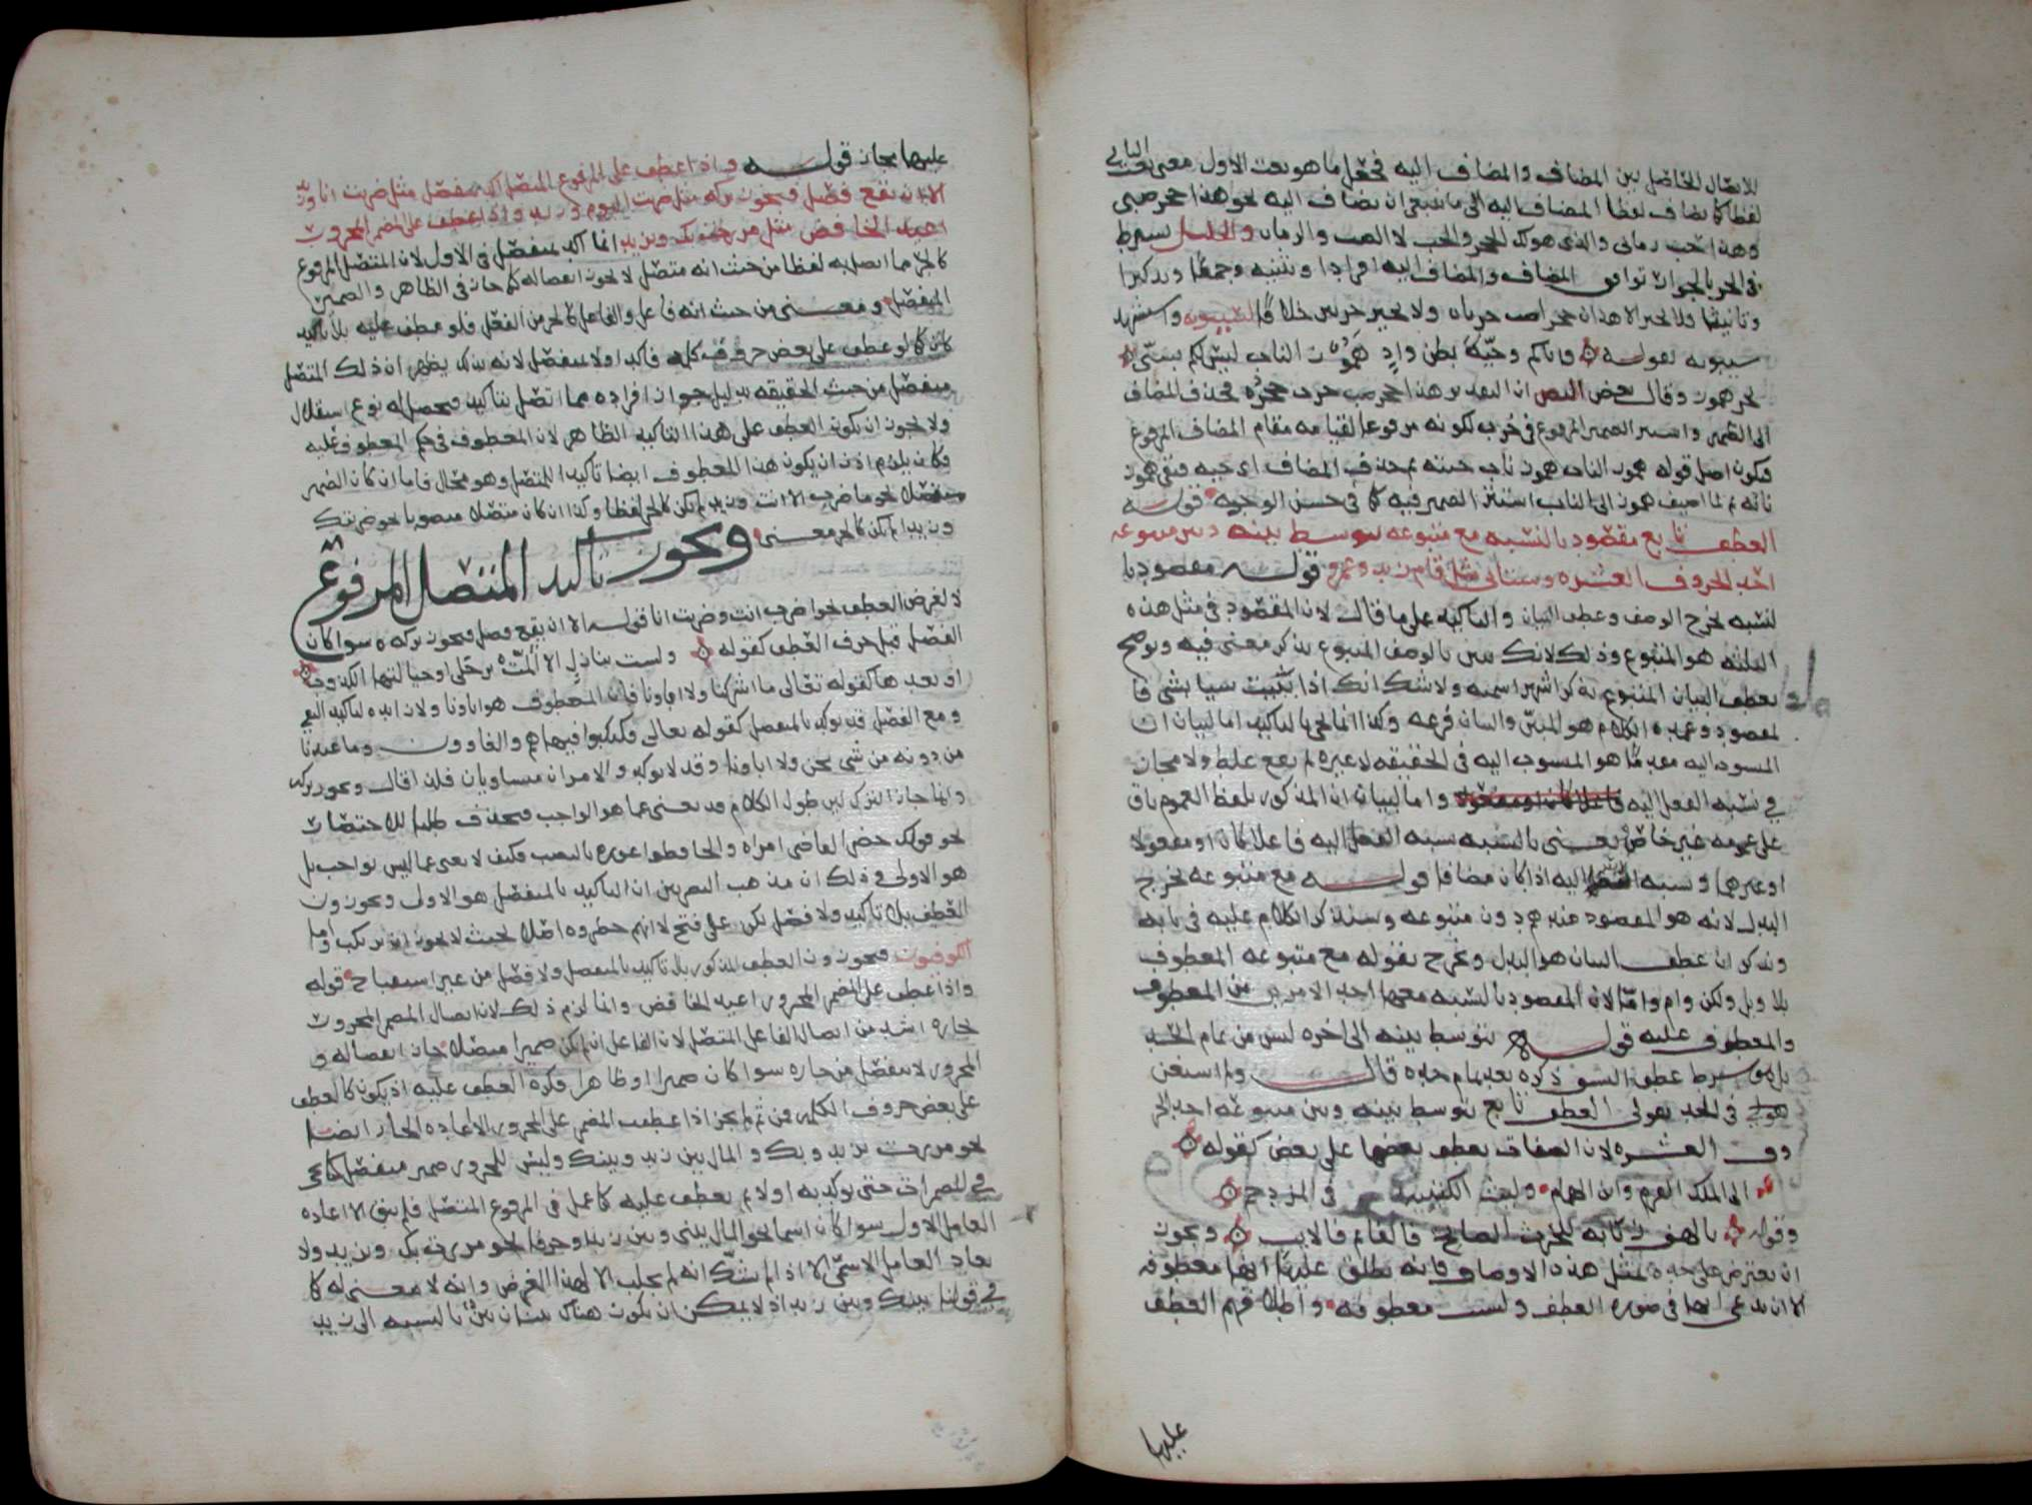 للاتصال الحاصل بين المضاف والمضاف اليه فجعل ما هو نعت الاول معنى نعت الثاني
لفظا كما يضاف لفظا المضاف اليه الى ما ينبغي ان يضاف اليه نحو هذا حجر ضبي
وهذا حب رماني والذي هو لك الحجر والحب لا الضب والرمان والخليل يشرط
في الجر بالجوار توافق المضاف والمضاف اليه افرادا وتثنية وجمعا وتذكيرا
وتانيثا ولا يجيز الا هذان حجرا ضب خربان ولا يجيز خربين خلافا لسيبويه واستشهد
سيبويه بقوله فاياكم وحية بطن واد هموز الناب ليس لكم بسي
بجر هموز وقال بعض البصر ان التقدير هذا حجر ضب خرب جحره فحذف المضاف
الى الضمير واستتر الضمير المرفوع في خرب لكونه مرفوعا لقيامه مقام المضاف المرفوع
فيكون اصل قوله هموز الناب هموز ناب حيته ثم حذف المضاف اي حيه فبقي هموز
نابه ثم لما اضيف هموز الى الناب استتر الضمير فيه كما في حسن الوجه قوله
العطف تابع مقصود بالنسبه مع متبوعه يتوسط بينه وبين متبوعه
احد الحروف العشره وسياتي مثل قام زيد وعمرو قوله مقصود با
لنسبه يخرج الوصف وعطف البيان والتاكيد على ما قال لان المقصود في مثل هذه
الثلثه هو المتبوع وذلك لانك تبين بالوصف المتبوع بذكر معنى فيه وتوضح
بعطف البيان المتبوع بذكر اشهر اسميه ولا شك انك اذا بينت شيا بشي فا
لمقصود وعمده الكلام هو المبين والبيان فرعه وكذا انما تجي بالتاكيد اما لبيان ان
المنسوب اليه مقدما هو المنسوب اليه في الحقيقه لا غيره لم يقع غلط ولا مجاز
في نسبه الفعل اليه واما لبيان ان المذكور بلفظ العموم باق
على عمومه غير خاص يعني بالنسبه نسبه الفعل اليه فاعلا كان او مفعولا
او غيرهما ونسبه الاسم اليه اذا كان مضافا قوله مع متبوعه يخرج
البدل لانه هو المقصود عندهم دون متبوعه وسنذكر الكلام عليه في بابه
ونذكر ان عطف البيان هو البدل ويخرج بقوله مع متبوعه المعطوف
بلا وبل ولكن وام واما لان المقصود بالنسبه معها احد الامرين من المعطوف
والمعطوف عليه قوله يتوسط بينه الى اخره ليس من تمام الحد
بل هو شرط عطف النسق ذكره بعد تمام حده قال ولم استغن
في الحد بقولي العطف تابع يتوسط بينه وبين متبوعه احد الحر
وف العشره لان الصفات يعطف بعضها على بعض كقوله
الى الملك القرم وابن الهمام وليث الكتيبة في المزدحم
وقوله يا لهف زيابه للحرث الصابح فالغانم فالايب ويجوز
ان يعترض على حده بمثل هذه الاوصاف فانه يطلق عليها انها معطوفه
الا ان يدعى انها في صوره العطف وليست معطوفه واطلاقهم العطف
عليها
عليها مجاز قوله واذا عطف على المرفوع المتصل اكد بمنفصل مثل ضربت انا وزيد
الا ان يقع فصل فيجوز تركه مثل ضربت اليوم وزيد واذا عطف على المضمر المجرور
اعيد الخافض مثل مررت بك وبزيد انما اكد بمنفصل في الاول لان المتصل المرفوع
كالجزء مما اتصل به لفظا من حيث انه متصل لا يجوز انفصاله كما جاز في الظاهر والضمير
المنفصل ومعنى من حيث انه فاعل والفاعل كالجزء من الفعل فلو عطف عليه بلا تاكيد
كان كما لو عطف على بعض حروف كلمه فاكد اولا بمنفصل لانه بذلك يظهر ان ذلك المتصل
منفصل من حيث الحقيقه بدليل جواز افراده مما اتصل بتاكيده فيحصل له نوع استقلال
ولا يجوز ان يكون العطف على هذا التاكيد الظاهر لان المعطوف في حكم المعطوف عليه
فكان يلزم اذن ان يكون هذا المعطوف ايضا تاكيدا للمتصل وهو محال فاما ان كان الضمير
منفصلا نحو ما ضرب الا انت وزيد لم يكن كالجزء لفظا وكذا ان كان متصلا منصوبا نحو ضربتك
وزيدا لم يكن كالجزء معنى ويجوز تاكيد المتصل المرفوع
لا لغرض العطف نحو اضرب انت وضربت انا قوله الا ان يقع فصل فيجوز تركه سوا كان
الفصل قبل حرف العطف كقوله ولست بنازل الا المت برحلي او خيالتها الكذوب
او بعدها كقوله تعالى ما اشركنا ولا اباونا فان المعطوف هو اباونا ولا زايده لتاكيد النفي
ومع الفصل قد يوكد بالمنفصل كقوله تعالى فكبكبوا فيها هم والغاوون وما عبدنا
من دونه من شي نحن ولا اباونا وقد لا يوكد والامران متساويان فلذا قال ويجوز تركه
وانما جاز الترك لان طول الكلام قد يغني عما هو الواجب فيحذف طلبا للاختصار
نحو قولك حضر القاضي امراه والحافظوا عوره بالنصب فكيف لا يغني عما ليس بواجب بل
هو الاولى وذلك ان مذهب البصريين ان التاكيد بالمنفصل هو الاولى ويجوزون
العطف بلا تاكيد ولا فصل لكن على قبح لا انهم حظروه اصلا بحيث لا يجوز ان يرتكب واما
الكوفيون فيجوزون العطف المذكور بلا تاكيد بالمنفصل ولا فصل من غير استقباح قوله
واذا عطف على المضمر المجرور اعيد الخافض وانما لزم ذلك لان اتصال المضمر المجرور
بجاره اشد من اتصال الفاعل المتصل لان الفاعل ان لم يكن ضميرا متصلا جاز انفصاله و
المجرور لا ينفصل من جاره سوا كان ضميرا او ظاهرا فكره العطف عليه اذ يكون كالعطف
على بعض حروف الكلمه فمن ثم لم يجز اذا عطفت المضمر على المجرور الا اعاده الجار ايضا
نحو مررت بزيد وبك والمال بين زيد وبينك وليس للمجرور ضمير منفصل كما يجي
في المضمرات حتى يوكد به اولا ثم يعطف عليه كما عمل في المرفوع المتصل فلم يبق الا اعاده
العامل الاول سوا كان اسما نحو المال بيني وبين زيد او حرفا نحو مررت بك وبزيد ولا
يعاد العامل الاسمي الا اذا لم يشك انه لم يجلب الا لهذا الغرض وانه لا معنى له كما
في قولنا بينك وبين زيد اذ لا يمكن ان يكون هناك بينان بين بالنسبه الى زيد